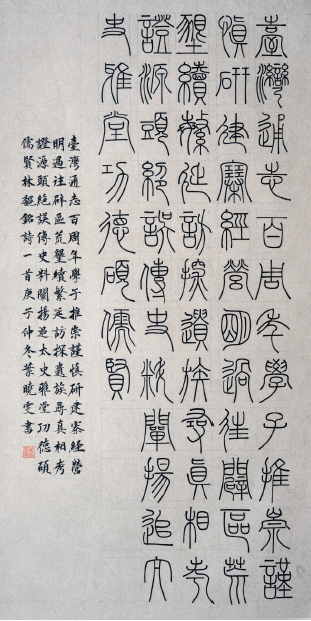 臺灣通志百周年學子推崇謹
慎研建寨經營明過往闢區荒
墾續繁延訪探遺族尋真相考
證源頭絕誤傳史料闡揚追太
史雅堂功德碩儒賢
臺灣通志百周年學子推崇謹慎研建寨經營
明過往辟區荒墾續繁延訪探遺族尋真相考
證源頭絕誤傳史料闡揚追太史雅堂功德碩
儒賢林銘詩一首庚子仲冬葉曉雯書